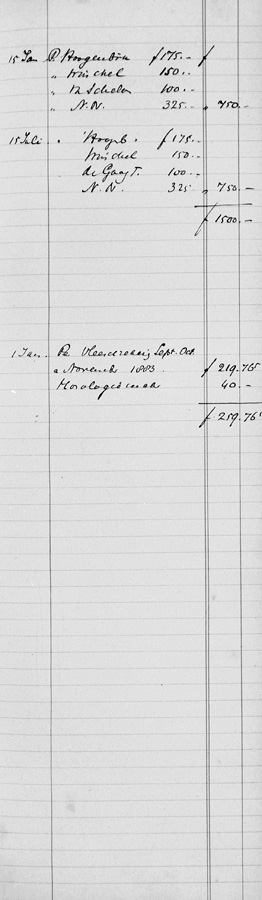 15 Jan P. Hoogenboom f 175.- f
" Winchel 150.-
" v. Schelven 100.-
" N.N. 325.- " 750.-
15 Juli " Hoogb. f 175.-
Winchel 150.-
de Gaay F. 100.-
N.N. 325 " 750.-
f 1500.-
1 Jan. Pr Vleeschrekening Sept. Oct.
a November 1883. f 219.765
Horologiemaker 40.-
f 259.765